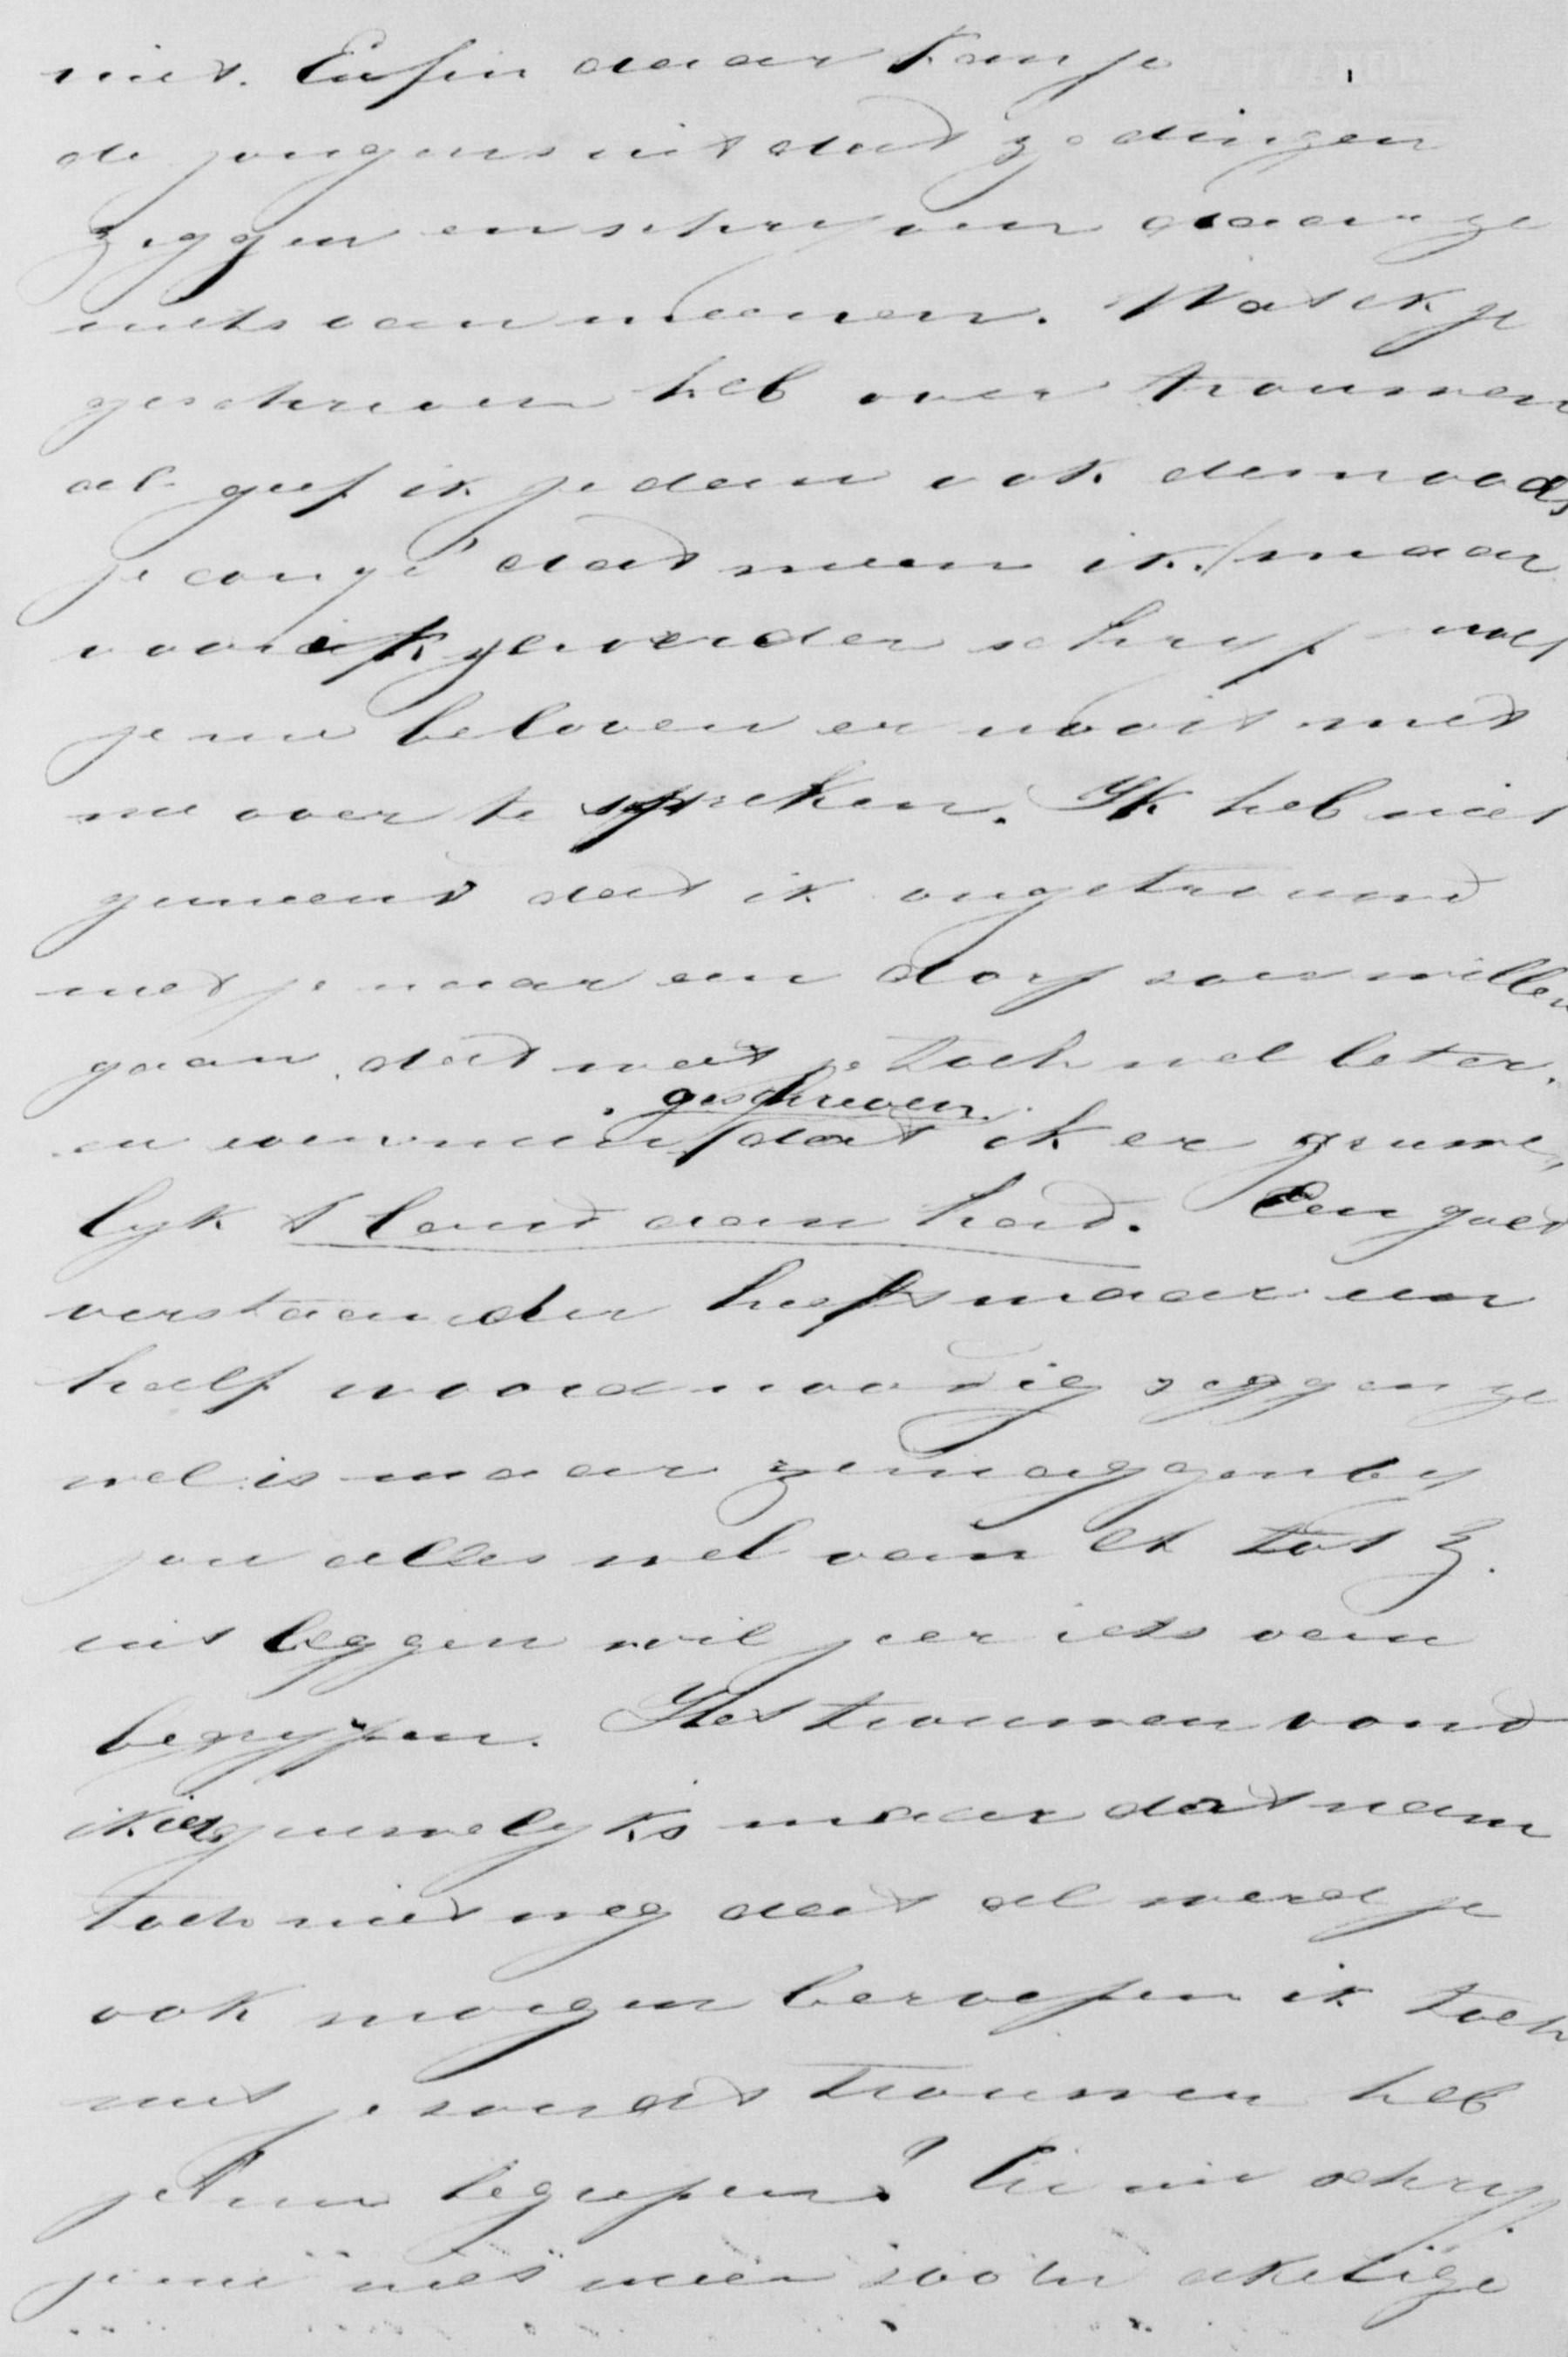 niet. Enfin daar kan je
de jongens uit dat ze dingen
zeggen en schrijven daar ze
niets van meenen. Wat ik je
geschreven heb over trouwen
al geef ik je dan ook des noods
je congé dat meen ik. maar
voor ik je verder schrijf moet
je me beloven er nooit met
me over te spreken. Ik heb niet
gemeend dat ik ongetrouwd
met je naar een dorp zou willen
gaan, dat weet je toch wel beter.
en geschreven dat ik er gruwe,
lijk 't land aan had. Een goed
verstaander heeft maar een
half woord noodig zeggen ze
wel is maar ze mag gen bij
jou alles wel van A tot Z.
uit leggen wil je er iets van
begrijpen. Het trouwen vond
ik iets gruwelijks maar dat nam
toch niet weg dat al werd je
ook morgen beroepen ik toch
met je zoudt trouwen heb
je 't nu begrepen? En nu schrijf
je me niet meer zoo'n akelige